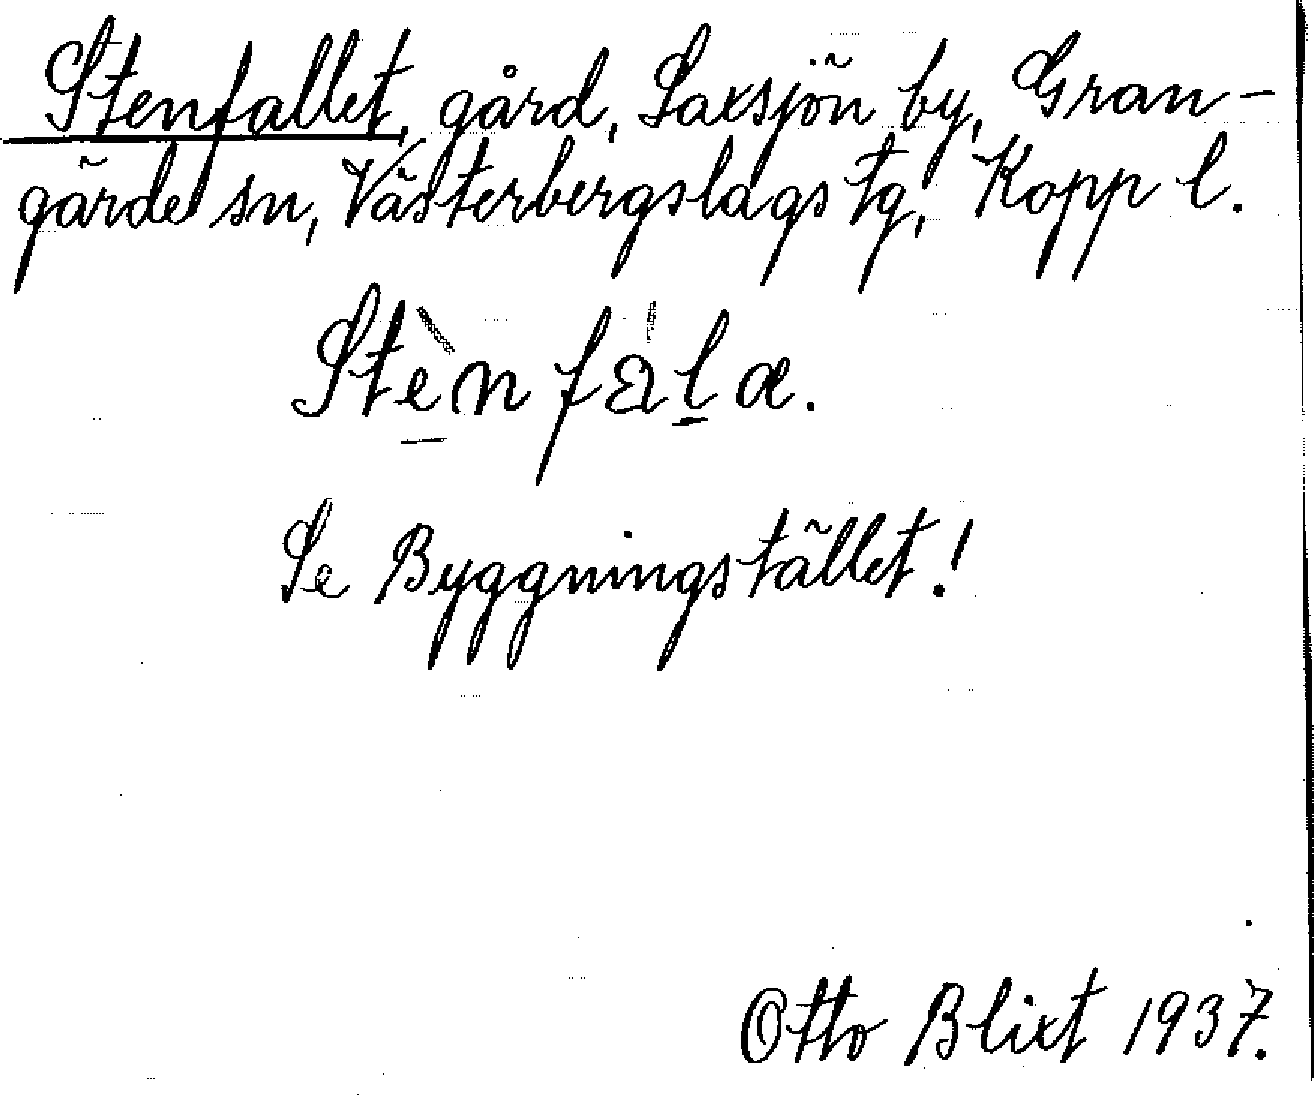 Stenfallet, gård, Saxsjön by, Gran-
gärde sn, Västerbergslags tg, Kopp l.
Stènfàlæ.
Se Byggningstället!
Otto Blixt 1937.